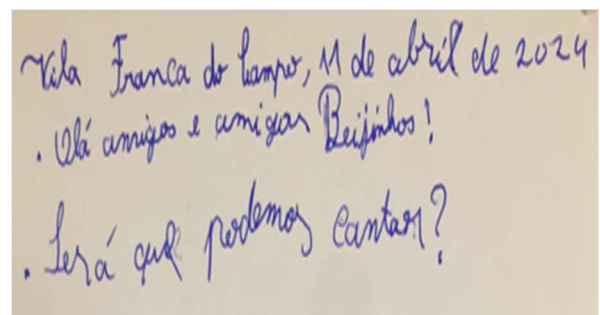 Vila Franca do Campo, 11 de abril de 2024
. Olá amigos e amigas Beijinhos!
. Será que podemos cantar?